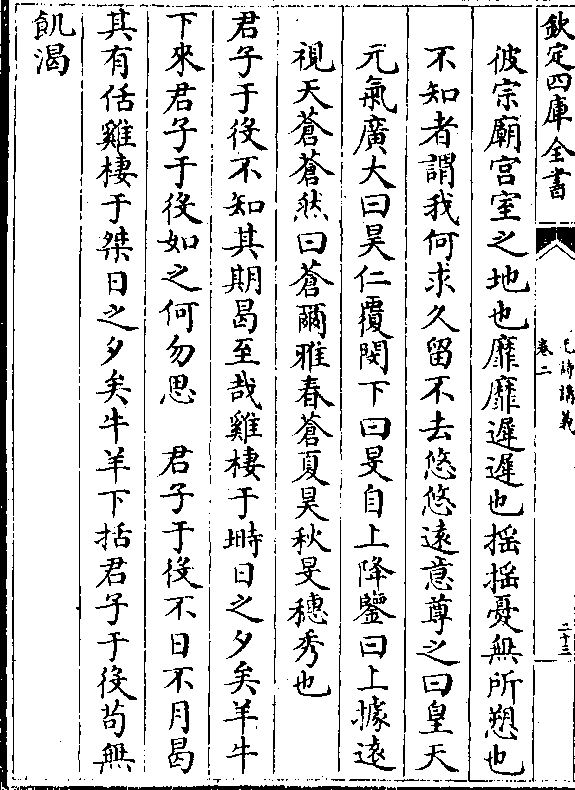 欽定四庫全書
毛詩講義
卷二
二十三
彼宗廟宫室之地也靡靡遲遲也揺揺憂無所愬也
不知者謂我何求久留不去悠悠逺意尊之曰皇天
元氣廣大曰昊仁覆閔下曰旻自上降鑒曰上據逺
視天蒼蒼然曰蒼爾雅春蒼夏昊秋旻穗秀也
君子于役不知其期曷至哉雞棲于塒日之夕矣羊牛
下來君子于役如之何勿思 君子于役不日不月曷
其有佸雞棲于桀日之夕矣牛羊下括君子于役苟無
飢渴